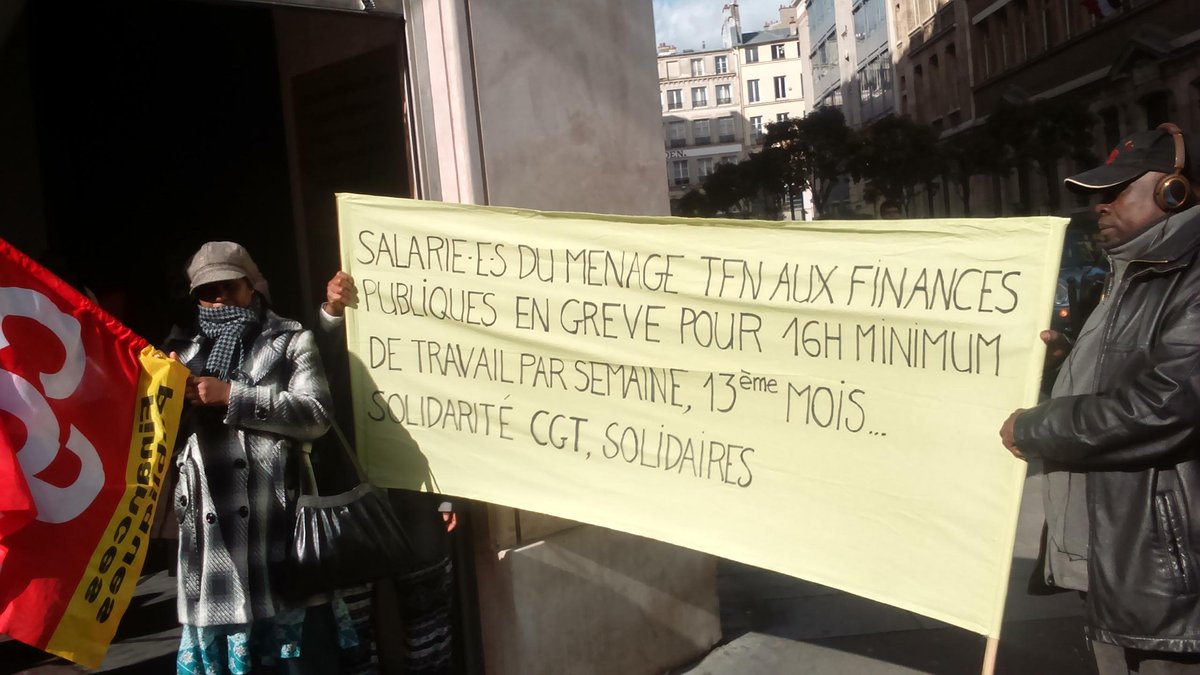 SALARIE·ES DU MENAGE TFN AUX FINANCES
PUBLIQUES EN GREVE POUR 16H MINIMUM
DE TRAVAIL PAR SEMAINE, 13ème MOIS...
SOLIDARITÉ CGT, SOLIDAIRES
Finances